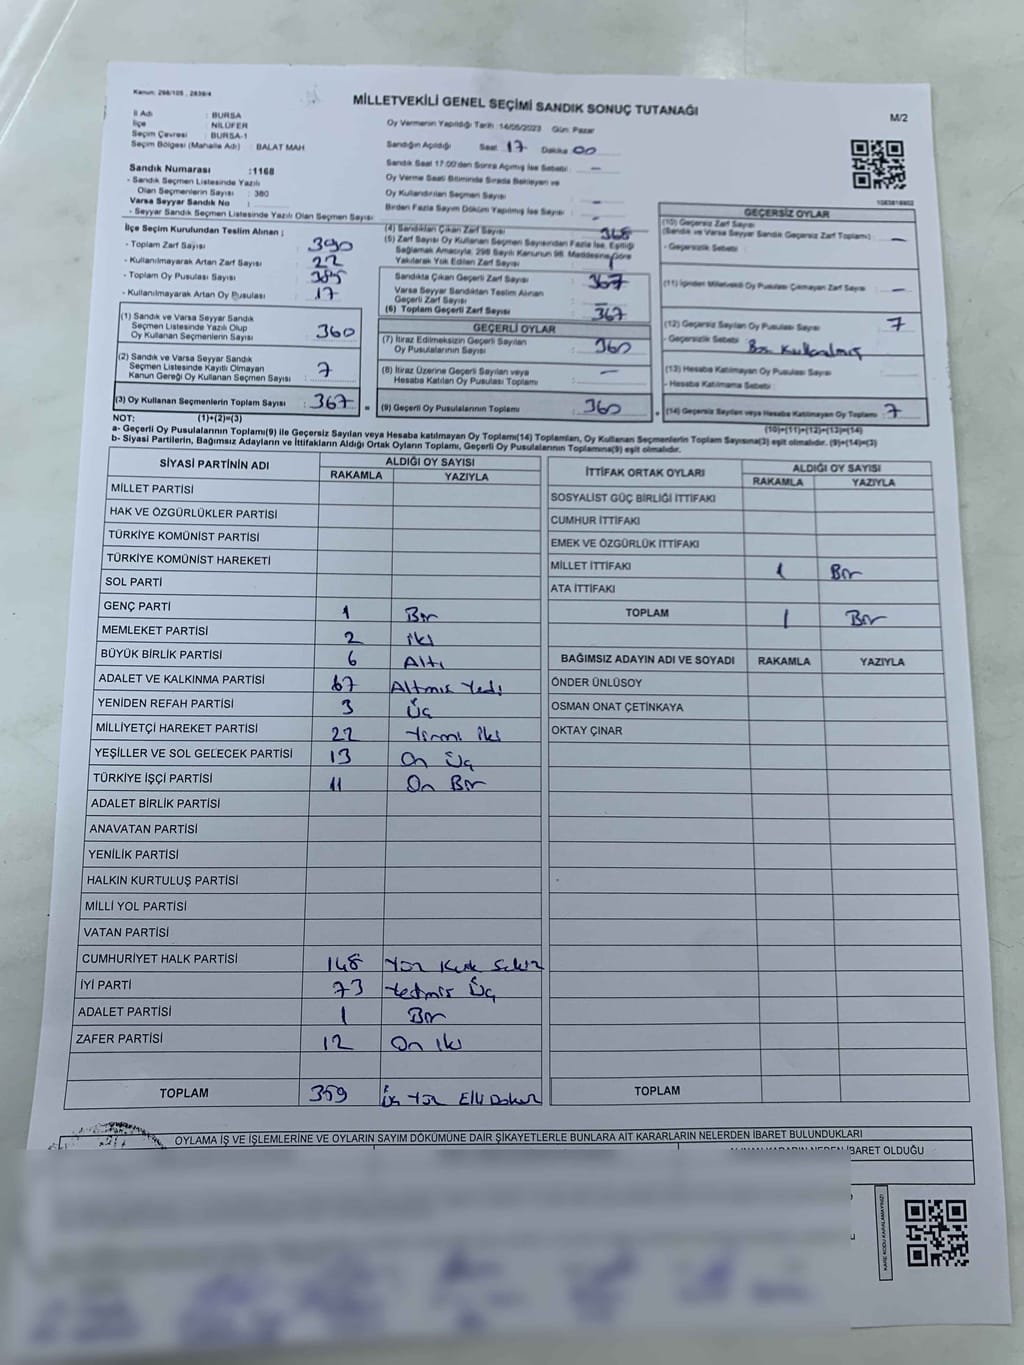 Kanun: 298/105 , 2839/4
MİLLETVEKİLİ GENEL SEÇİMİ SANDIK SONUÇ TUTANAĞI
M/2
İl Adı : BURSA
İlçe : NİLÜFER
Seçim Çevresi : BURSA-1
Seçim Bölgesi (Mahalle Adı) : BALAT MAH
Oy Vermenin Yapıldığı Tarih :14/05/2023 Gün: Pazar
Sandığın Açıldığı Saat: 17 Dakika: 00
Sandık Saat 17:00'den Sonra Açılmış İse Sebebi : –
Oy Verme Saati Bitiminde Sırada Bekleyen ve
Oy Kullandırılan Seçmen Sayısı : –
Birden Fazla Sayım Döküm Yapılmış İse Sayısı : –
Sandık Numarası :1168
- Sandık Seçmen Listesinde Yazılı
Olan Seçmenlerin Sayısı : 380
Varsa Seyyar Sandık No :
- Seyyar Sandık Seçmen Listesinde Yazılı Olan Seçmen Sayısı :
İlçe Seçim Kurulundan Teslim Alınan ;
- Toplam Zarf Sayısı : 390
- Kullanılmayarak Artan Zarf Sayısı : 22
- Toplam Oy Pusulası Sayısı : 385
- Kullanılmayarak Artan Oy Pusulası : 17
(1) Sandık ve Varsa Seyyar Sandık
Seçmen Listesinde Yazılı Olup
Oy Kullanan Seçmenlerin Sayısı : 360
(2) Sandık ve Varsa Seyyar Sandık
Seçmen Listesinde Kayıtlı Olmayan
Kanun Gereği Oy Kullanan Seçmen Sayısı : 7
(3) Oy Kullanan Seçmenlerin Toplam Sayısı : 367 =
(4) Sandıktan Çıkan Zarf Sayısı : 368
(5) Zarf Sayısı Oy Kullanan Seçmen Sayısından Fazla İse, Eşitliği
Sağlamak Amacıyla, 298 Sayılı Kanunun 98. Maddesine Göre
Yakılarak Yok Edilen Zarf Sayısı : 1
Sandıkta Çıkan Geçerli Zarf Sayısı : 367
Varsa Seyyar Sandıktan Teslim Alınan
Geçerli Zarf Sayısı :
(6) Toplam Geçerli Zarf Sayısı : 367
GEÇERLİ OYLAR
(7) İtiraz Edilmeksizin Geçerli Sayılan
Oy Pusulalarının Sayısı : 360
(8) İtiraz Üzerine Geçerli Sayılan veya
Hesaba Katılan Oy Pusulası Toplamı : –
(9) Geçerli Oy Pusulalarının Toplamı : 360 +
1083818902
GEÇERSİZ OYLAR
(10) Geçersiz Zarf Sayısı
(Sandık ve Varsa Seyyar Sandık Geçersiz Zarf Toplamı) : –
- Geçersizlik Sebebi :
(11) İçinden Milletvekili Oy Pusulası Çıkmayan Zarf Sayısı : –
(12) Geçersiz Sayılan Oy Pusulası Sayısı : 7
- Geçersizlik Sebebi : Boş Kullanılmış
(13) Hesaba Katılmayan Oy Pusulası Sayısı :
- Hesaba Katılmama Sebebi :
(14) Geçersiz Sayılan veya Hesaba Katılmayan Oy Toplamı : 7
NOT: (1)+(2)=(3)
(10)+(11)+(12)+(13)=(14)
a- Geçerli Oy Pusulalarının Toplamı(9) ile Geçersiz Sayılan veya Hesaba katılmayan Oy Toplamı(14) Toplamları, Oy Kullanan Seçmenlerin Toplam Sayısına(3) eşit olmalıdır. (9)+(14)=(3)
b- Siyasi Partilerin, Bağımsız Adayların ve İttifakların Aldığı Ortak Oyların Toplamı, Geçerli Oy Pusulalarının Toplamına(9) eşit olmalıdır.
SİYASİ PARTİNİN ADI ALDIĞI OY SAYISI
RAKAMLA YAZIYLA
MİLLET PARTİSİ
HAK VE ÖZGÜRLÜKLER PARTİSİ
TÜRKİYE KOMÜNİST PARTİSİ
TÜRKİYE KOMÜNİST HAREKETİ
SOL PARTİ
GENÇ PARTİ 1 Bir
MEMLEKET PARTİSİ 2 iki
BÜYÜK BİRLİK PARTİSİ 6 Altı
ADALET VE KALKINMA PARTİSİ 67 Altmış Yedi
YENİDEN REFAH PARTİSİ 3 Üç
MİLLİYETÇİ HAREKET PARTİSİ 22 Yirmi iki
YEŞİLLER VE SOL GELECEK PARTİSİ 13 On Üç
TÜRKİYE İŞÇİ PARTİSİ 11 On Bir
ADALET BİRLİK PARTİSİ
ANAVATAN PARTİSİ
YENİLİK PARTİSİ
HALKIN KURTULUŞ PARTİSİ
MİLLİ YOL PARTİSİ
VATAN PARTİSİ
CUMHURİYET HALK PARTİSİ 148 Yüz Kırk Sekiz
İYİ PARTİ 73 Yetmiş Üç
ADALET PARTİSİ 1 Bir
ZAFER PARTİSİ 12 On iki
TOPLAM 359 Üç Yüz Elli Dokuz
İTTİFAK ORTAK OYLARI ALDIĞI OY SAYISI
RAKAMLA YAZIYLA
SOSYALİST GÜÇ BİRLİĞİ İTTİFAKI
CUMHUR İTTİFAKI
EMEK VE ÖZGÜRLÜK İTTİFAKI
MİLLET İTTİFAKI 1 Bir
ATA İTTİFAKI
TOPLAM 1 Bir
BAĞIMSIZ ADAYIN ADI VE SOYADI RAKAMLA YAZIYLA
ÖNDER ÜNLÜSOY
OSMAN ONAT ÇETİNKAYA
OKTAY ÇINAR
TOPLAM
OYLAMA İŞ VE İŞLEMLERİNE VE OYLARIN SAYIM DÖKÜMÜNE DAİR ŞİKAYETLERLE BUNLARA AİT KARARLARIN NELERDEN İBARET BULUNDUKLARI
İBARET OLDUĞU
KARE KODU KARALAMAYINIZ!